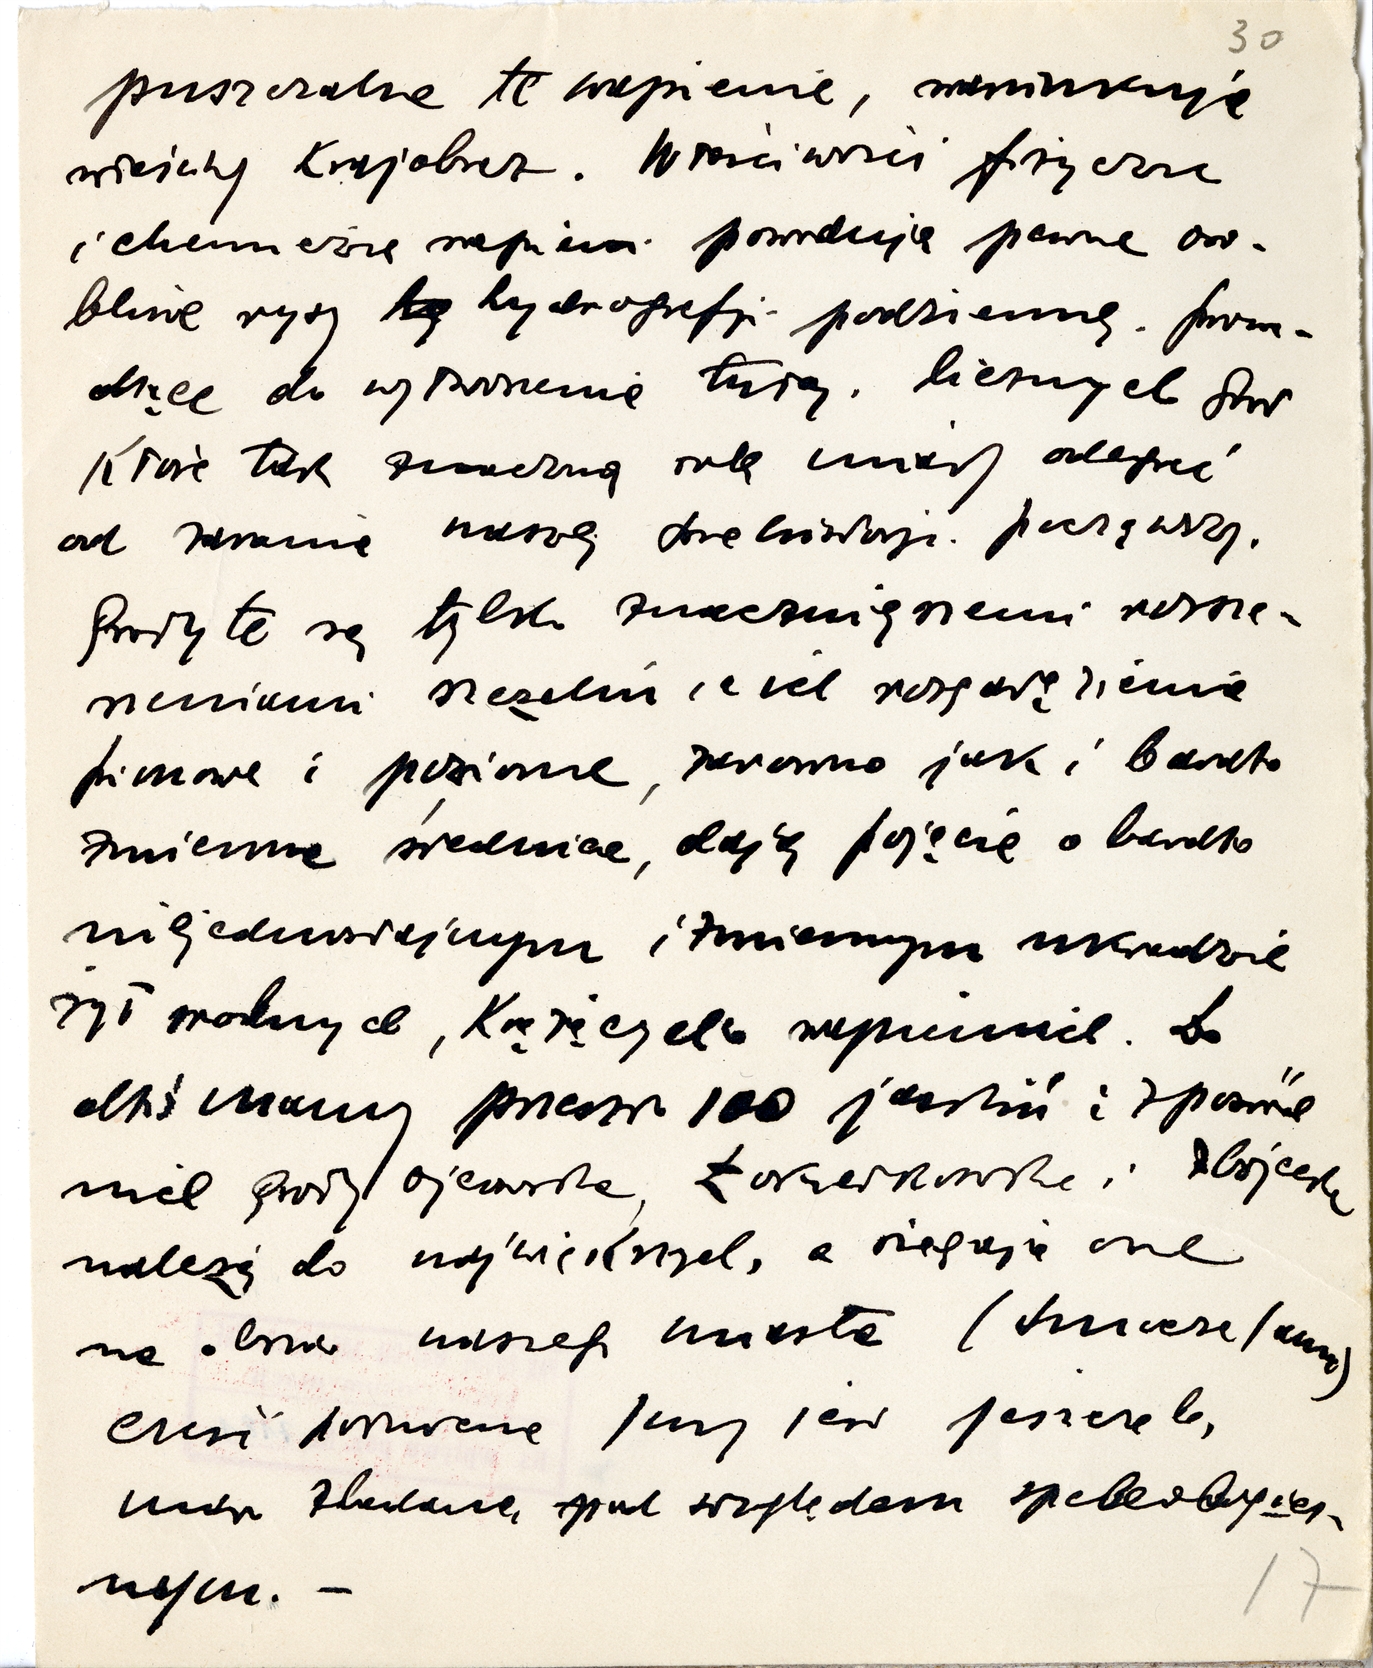 30
puszczalne te wapienie,
wiejski Krajobraz. Właściwości fizyczne
i chemiczne wapieni powodują pewne oso-
bliwe rysy hydrografji podziemnej. prowa-
dzące do wytworzenia tutaj. licznych grot
które tak znaczną rolę miały odegrać
od zarania naszej prehistorji. począwszy.
Groty te są tylko znaczniejszemi rozsze-
rzeniami szczelin a ich rozgałęzienie
pionowe i poziome, zarowno jak i bardzo
zmienne średnice, dają pojęcie o bardzo
niejednostajnym i zmiennym układzie
żył wodnych, Krążących w wapieniach. Do
dziś znamy przeszło 100 jaskiń i z pośród
nich groty Ojcowska, Łokietkowska i Zbójecka
należą do największych, a sięgają one
na obszar naszego miasta (Smocza Jama)
część północna Jury jest jeszcze b,
mało zbadana, pod względem speleologicz-
nym. -
17